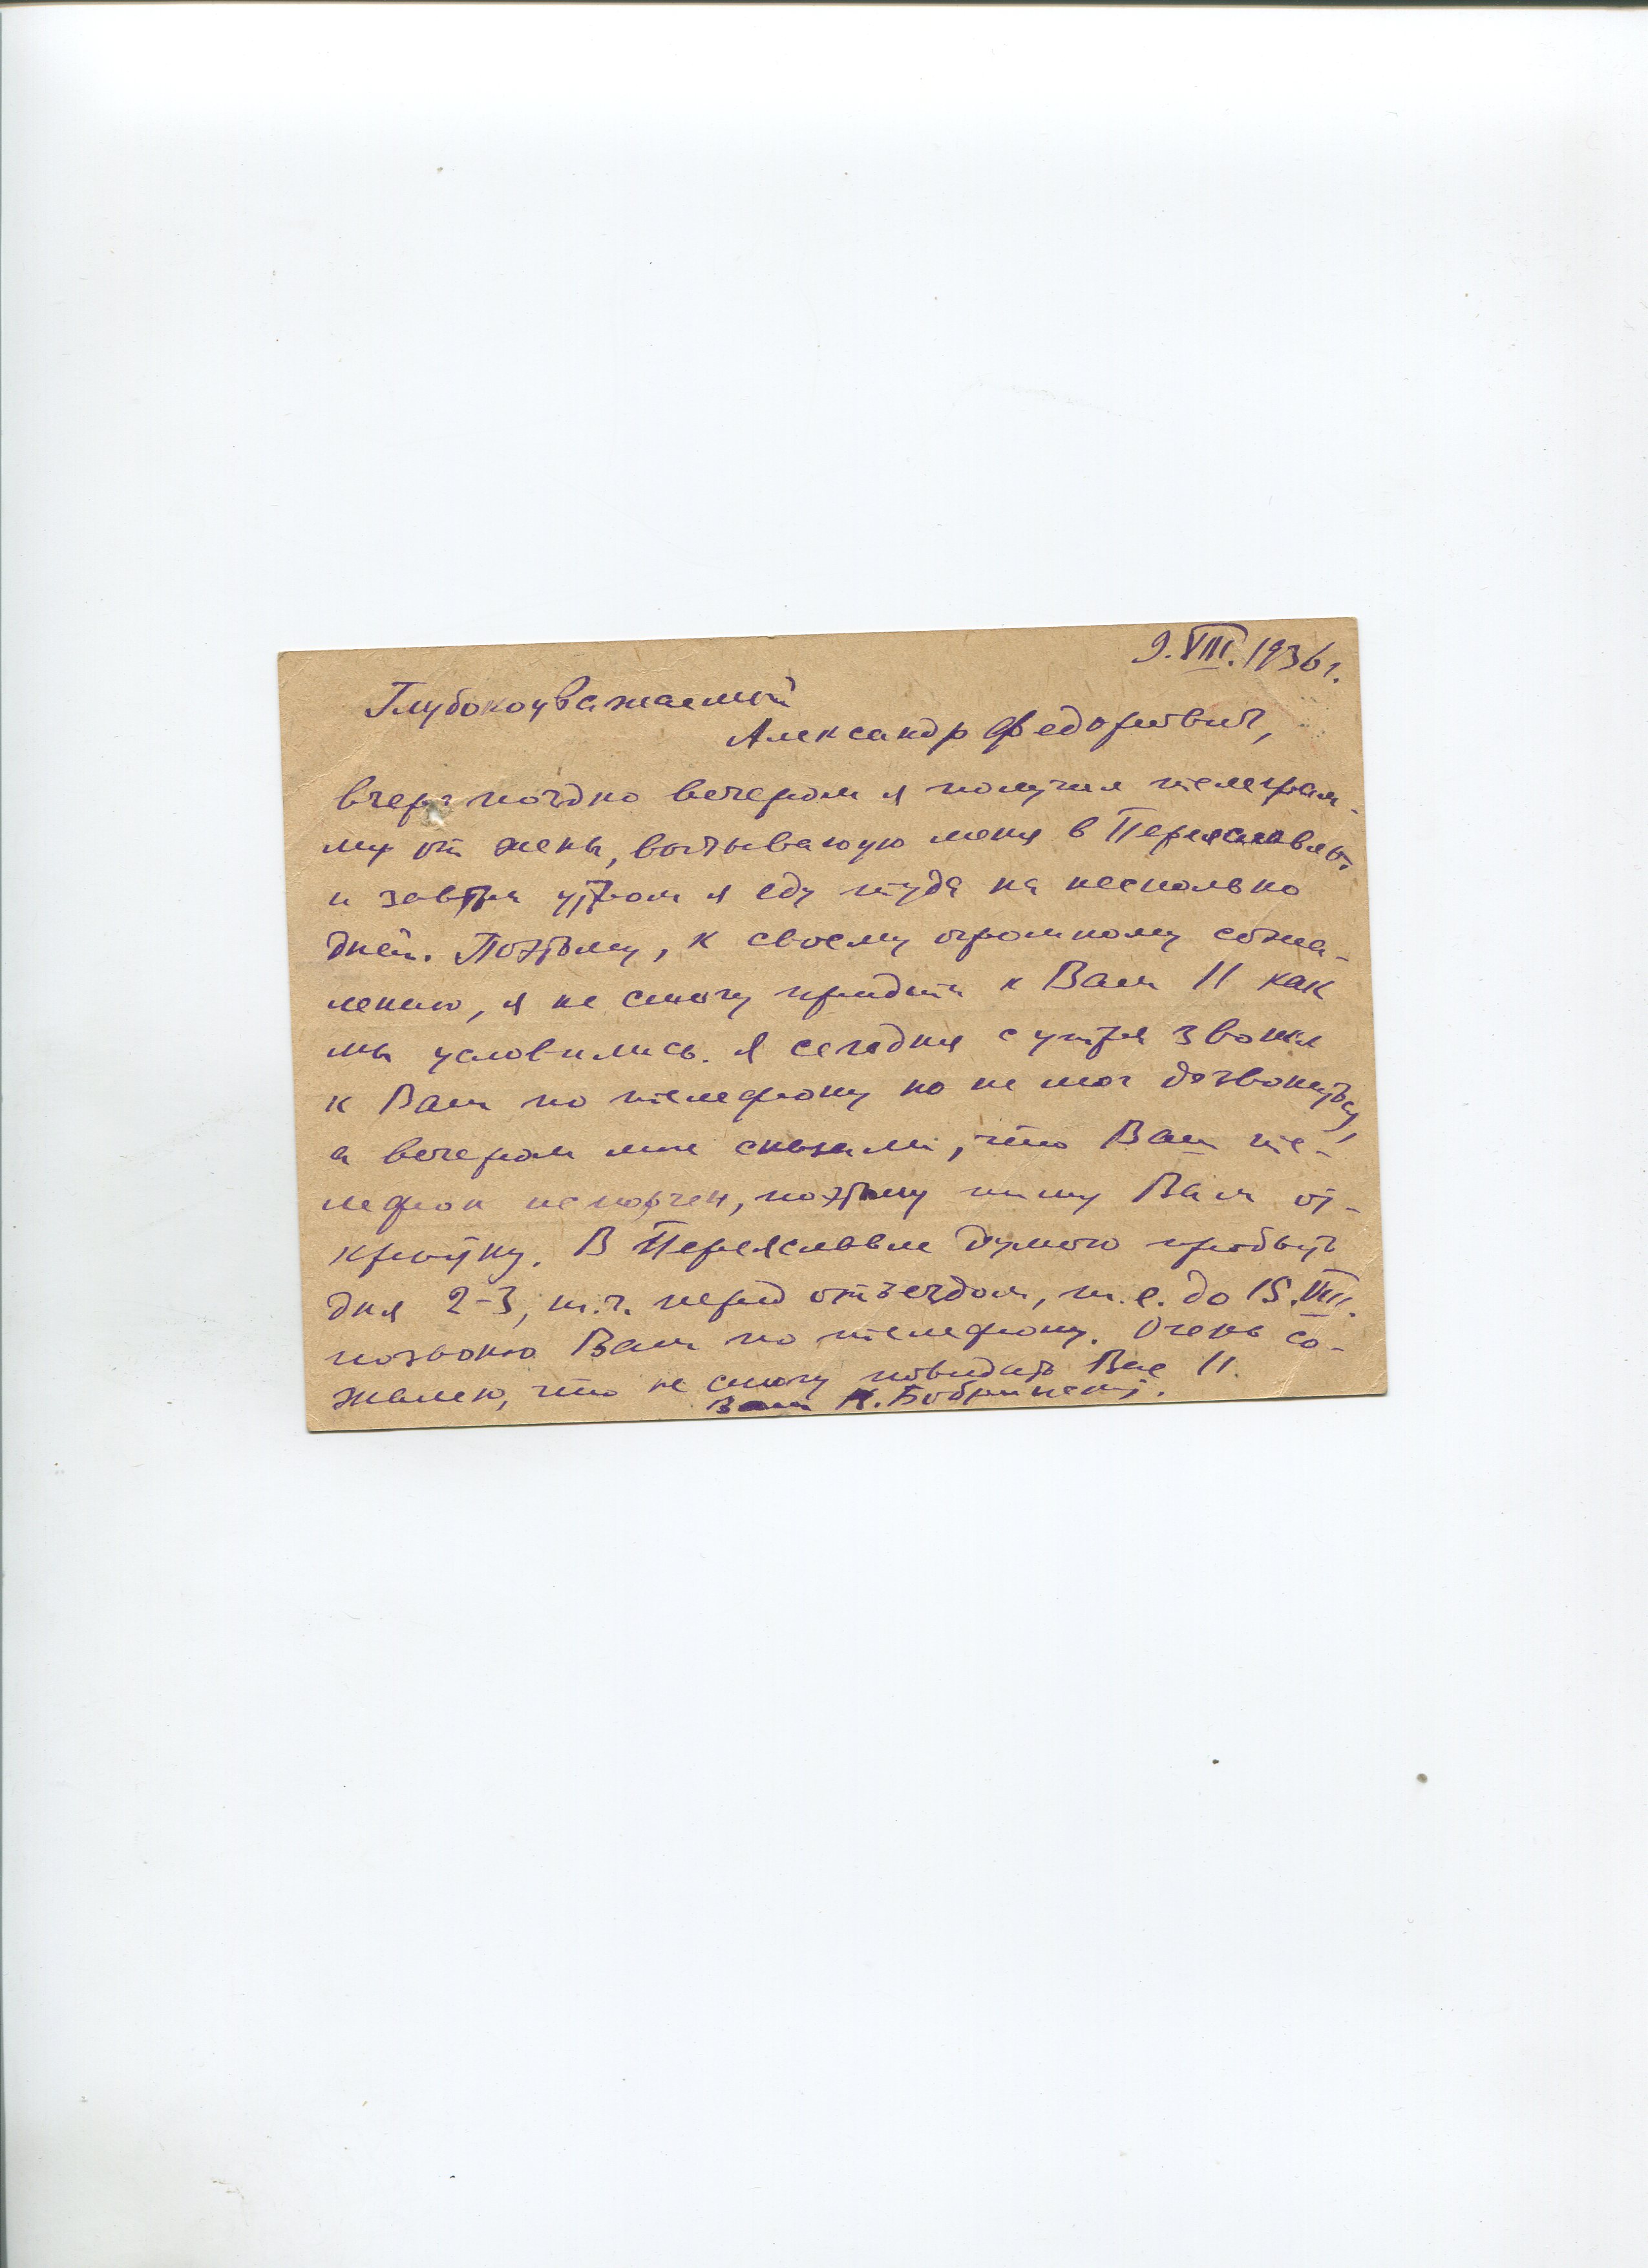 9.VIII.1936г.
Глубокоуважаемый
Александр Федорович,
вчера поздно вечером я получил телеграм-
му от жены, вызывающую меня в Переяславль,
и завтра утром я еду туда на несколько
дней. Поэтому, к своему огромному сожа-
лению, я не смогу придти к Вам 11 как
мы условились. Я сегодня с утра звонил
к Вам по телефону но не мог дозвониться,
а вечером мне сказали, что Ваш те-
лефон испорчен, поэтому пишу Вам от-
крытку. В Переяславле думаю пробыть
дня 2-3, т.ч. перед отъездом, т.е. до 15.VIII.
позвоню Вам по телефону. Очень со-
жалею, что не смогу повидать Вас 11.
Ваш Н.Бобринский.